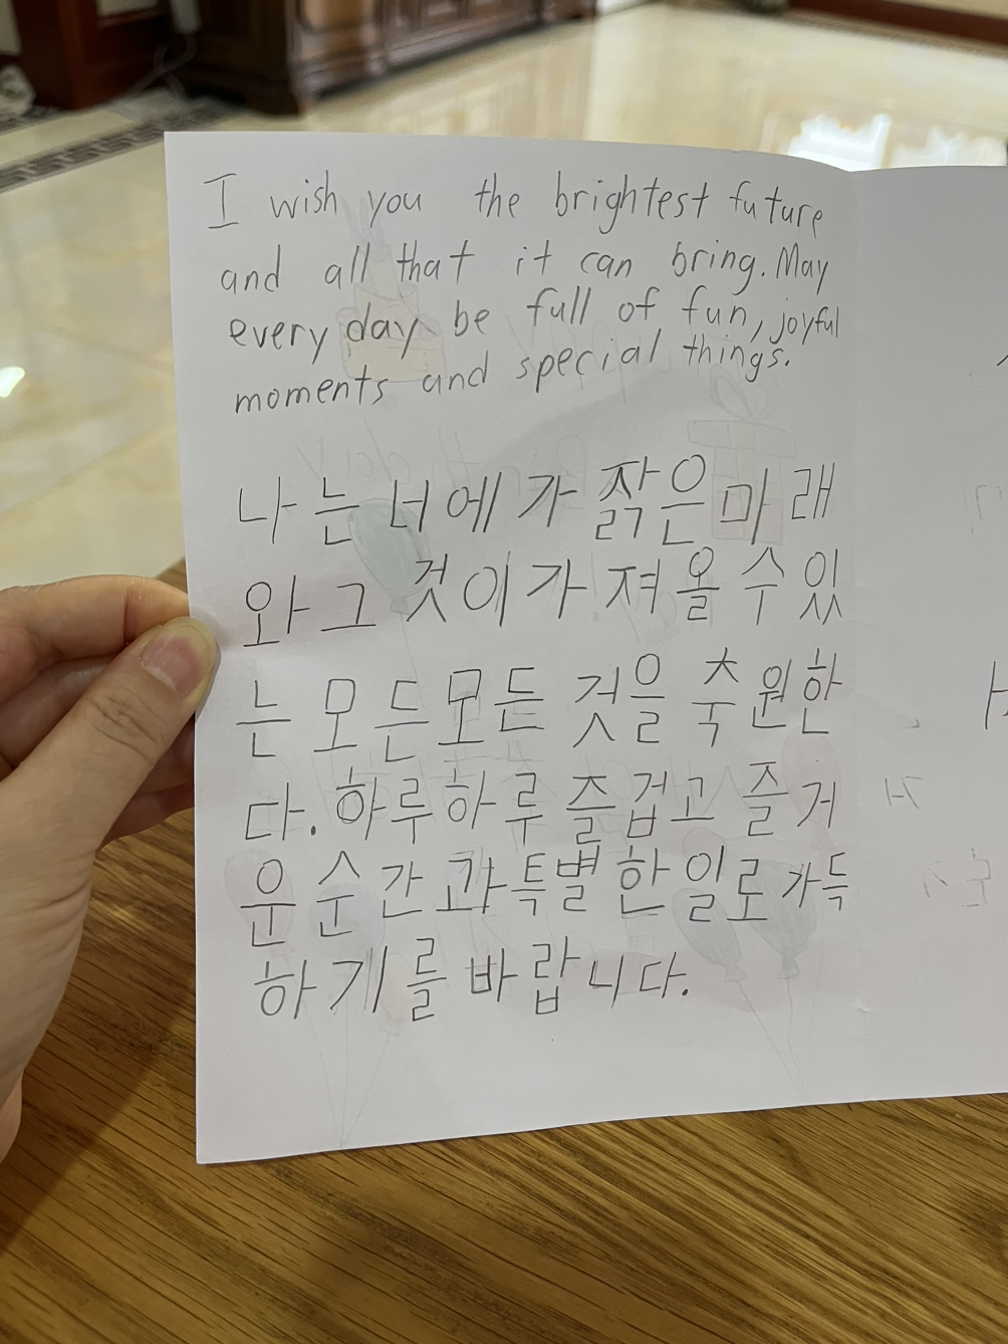 I wish you the brightest future
and all that it can bring. May
every day be full of fun, joyful
moments and special things.
나는 너에가 짥은 마래
와 그 것이 가져올 수 있
는 모든모든 것을 축원한
다. 하루하루 즐겁고 즐거
운 순간 과 특별한 일로 가득
하기를 바랍니다.